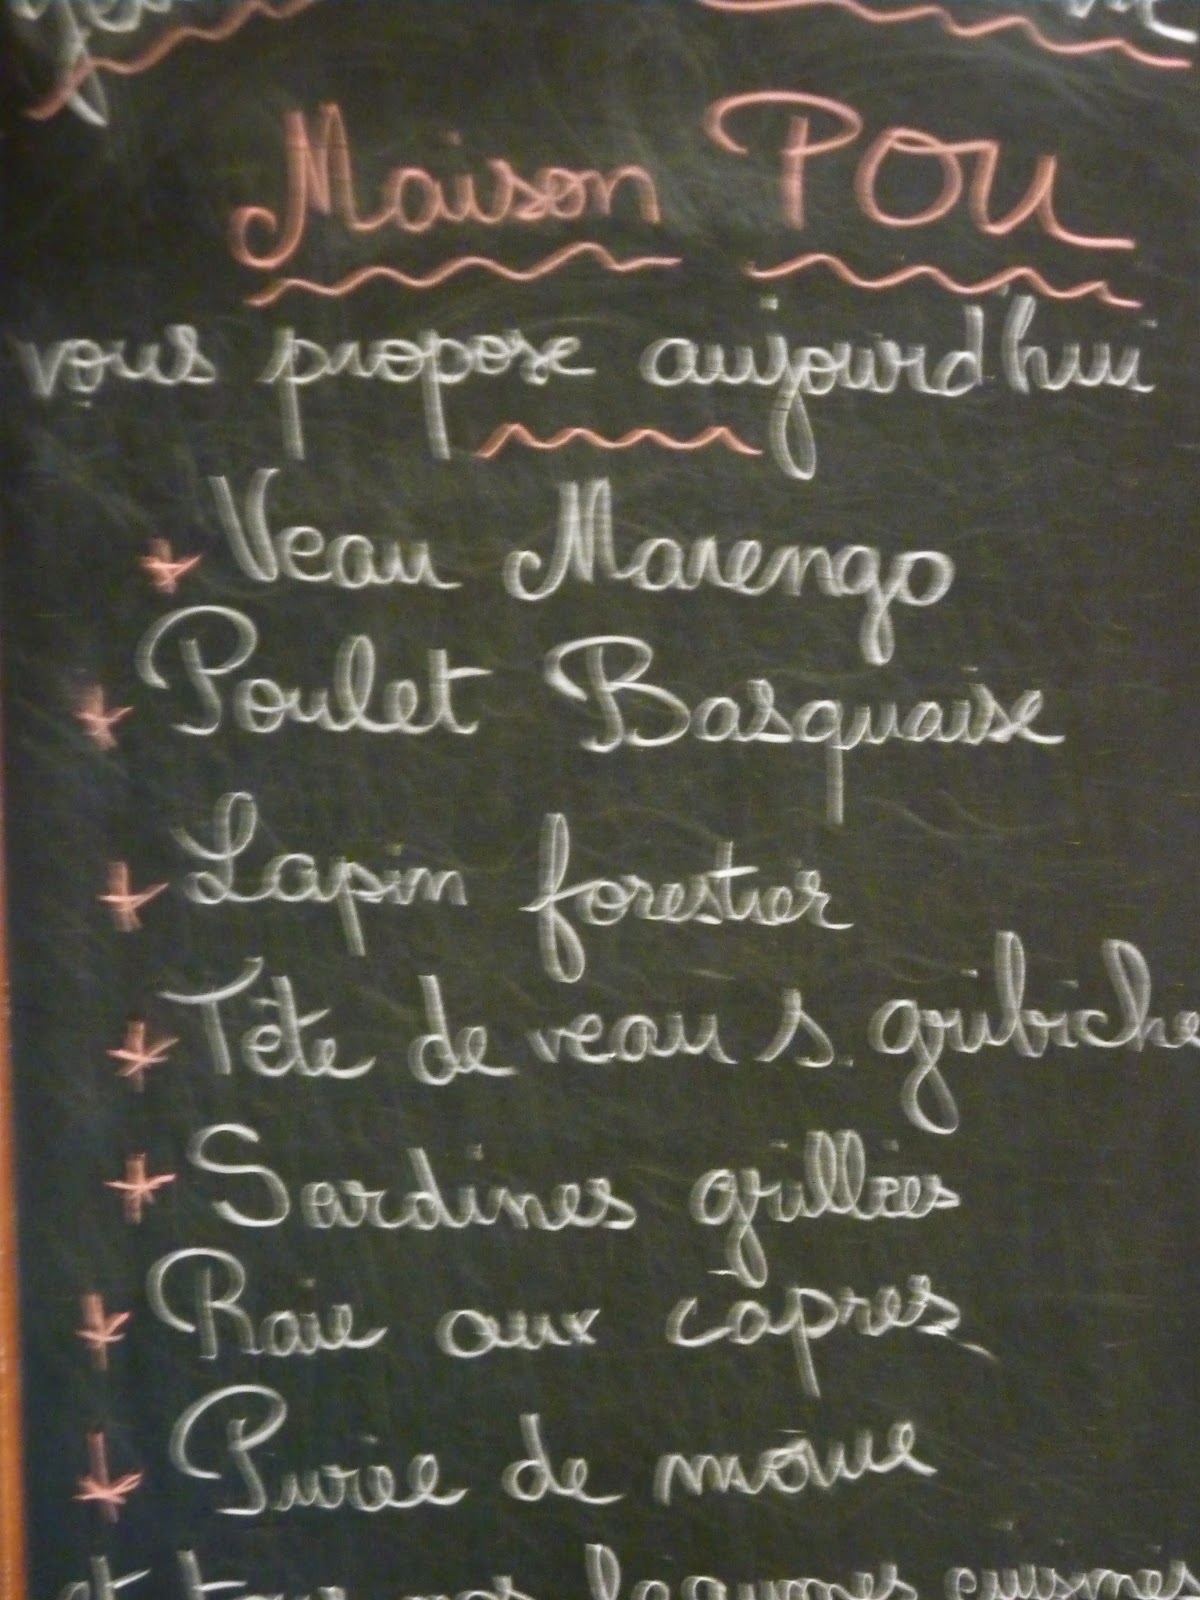 Maison POU
vous propose aujourd'hui
Veau Marengo
Poulet Basquaise
Lapin forestier
Tête de veau s. gribiche
Sardines grillées
Raie aux câpres
Purée de morue
et tous nos légumes cuisinés